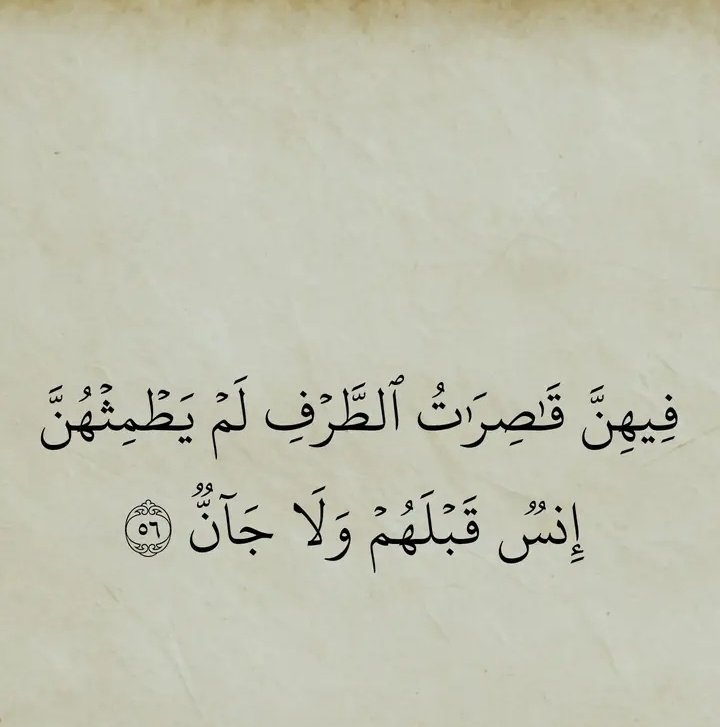 فِيهِنَّ قَٰصِرَٰتُ ٱلطَّرۡفِ لَمۡ يَطۡمِثۡهُنَّ
إِنسٞ قَبۡلَهُمۡ وَلَا جَآنّٞ ٥٦